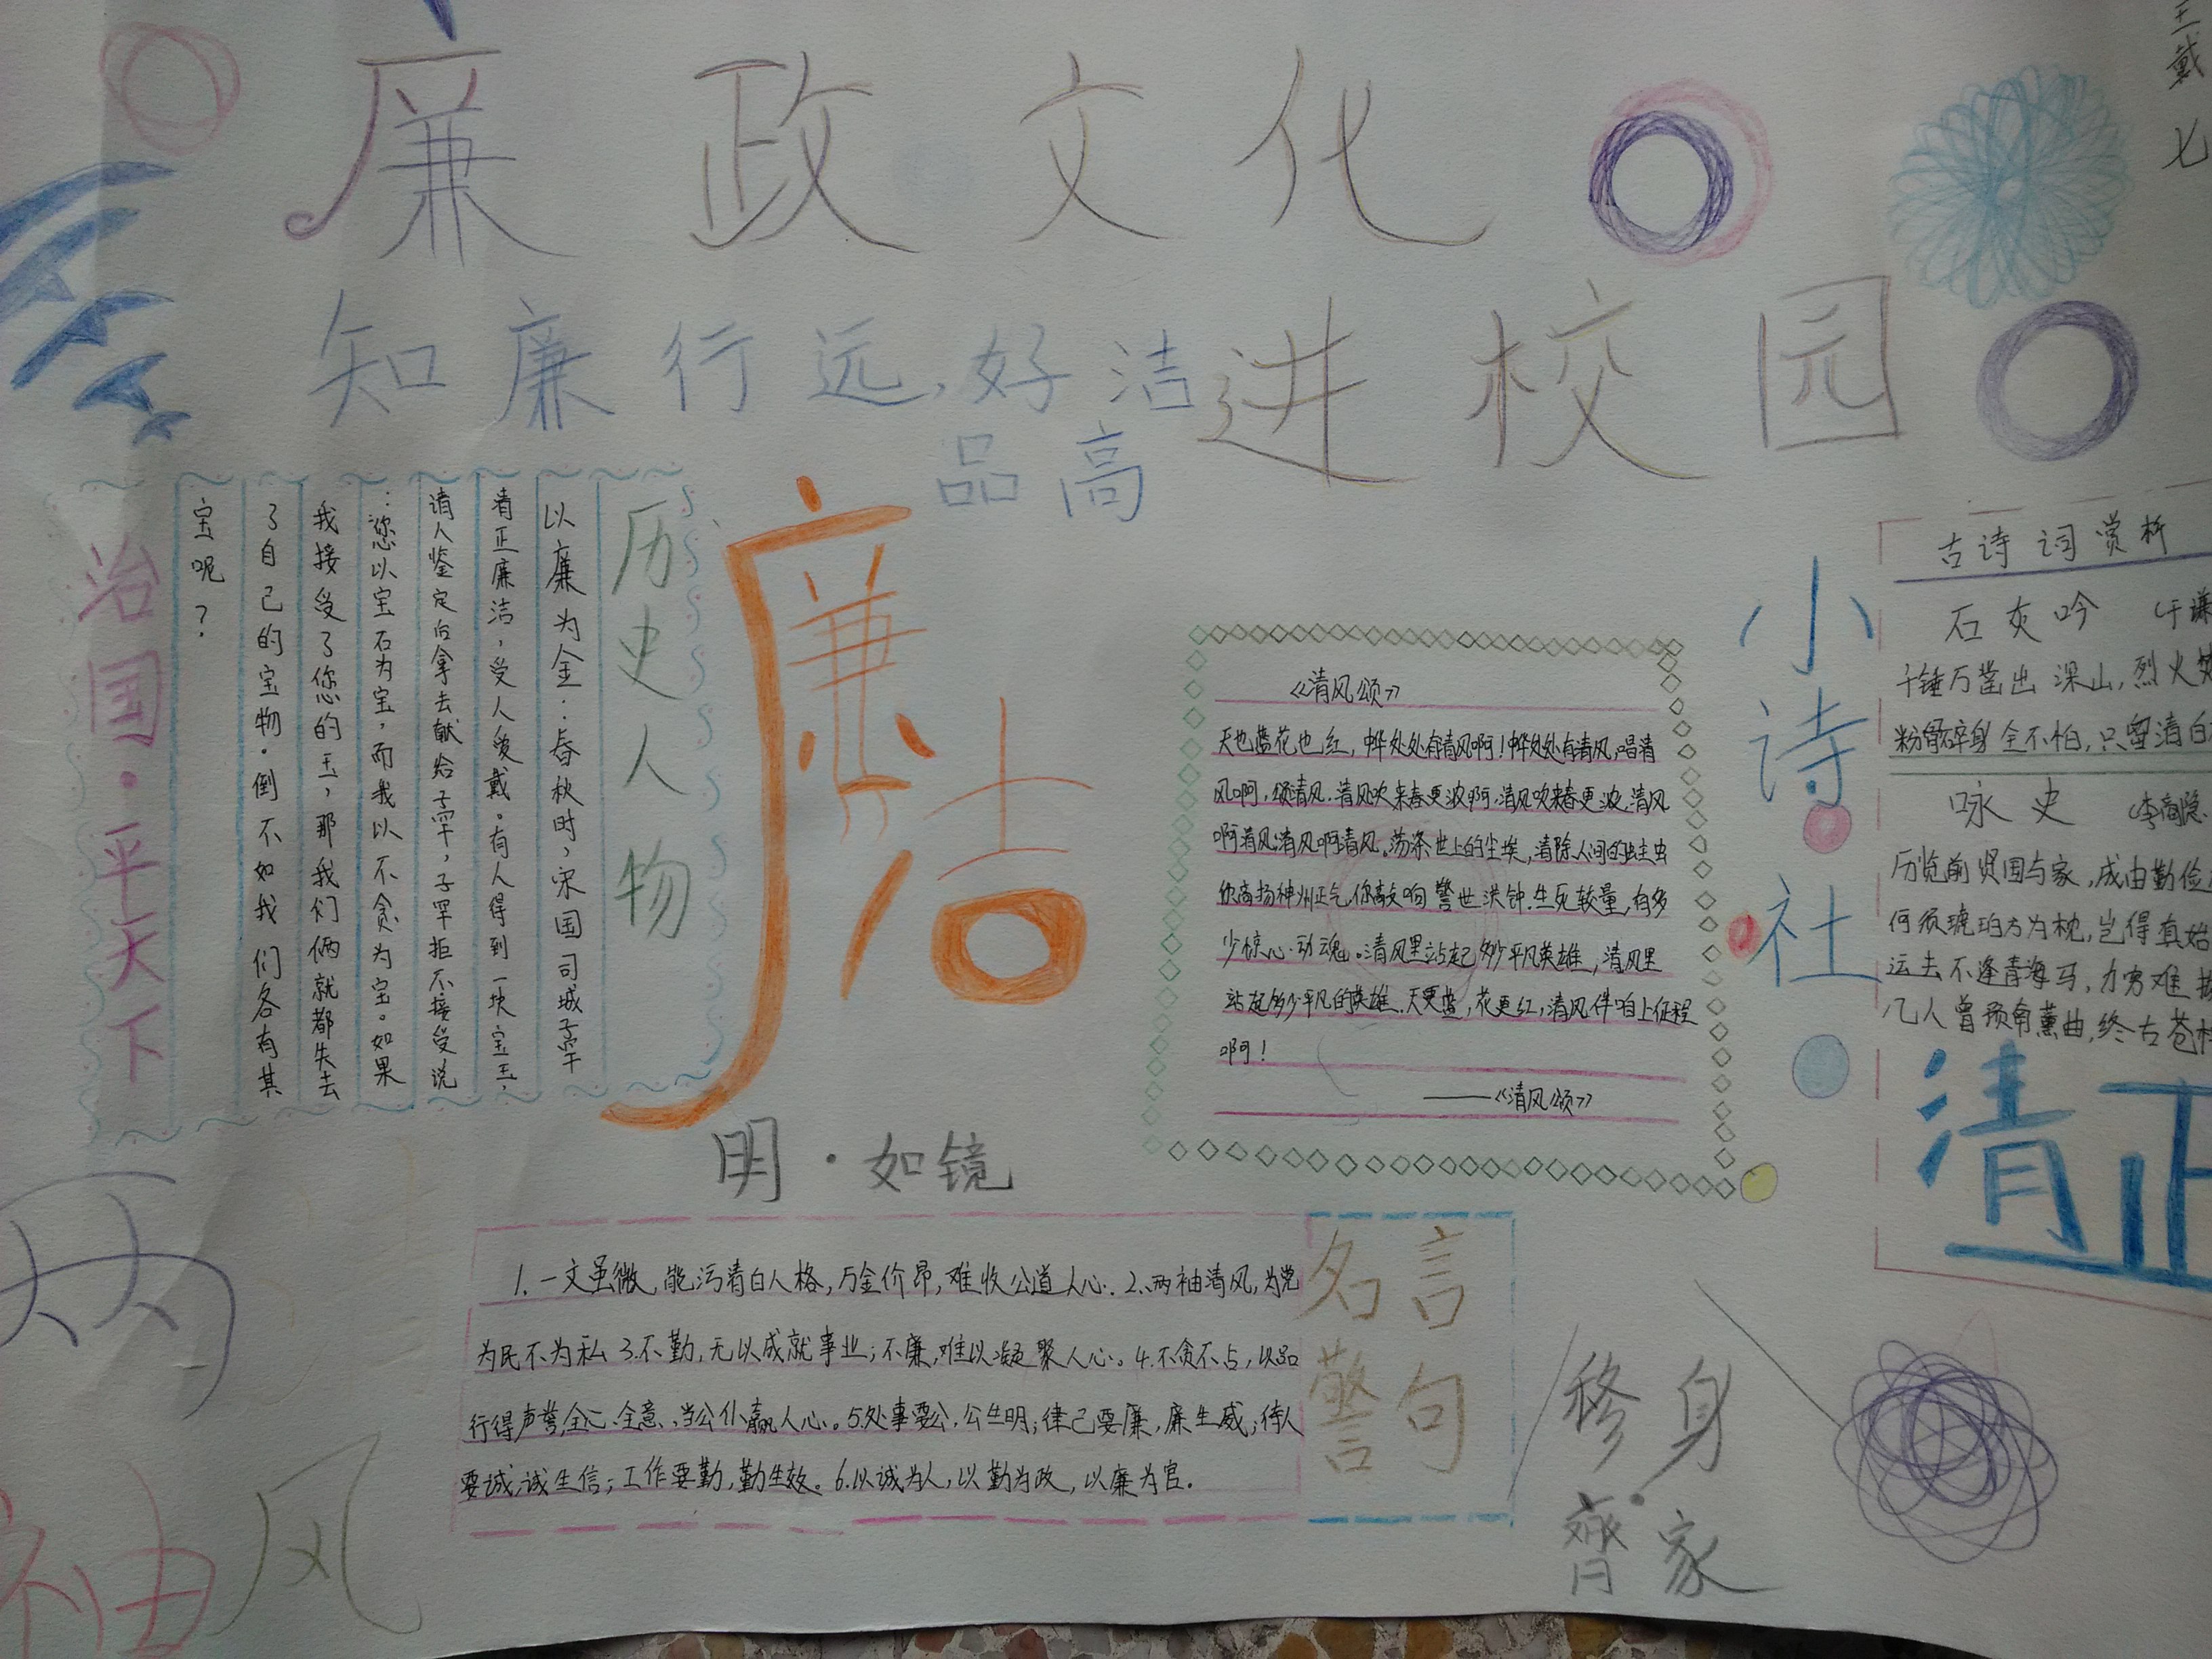 廉政文化
进校园
知廉行远，好洁
品高
戴
七
历史人物
以廉为金：春秋时，宋国司城子罕
清正廉洁，受人爱戴。有人得到一块宝玉，
请人鉴定后拿去献给子罕，子罕拒不接受说
：您以宝石为宝，而我以不贪为宝。如果
我接受了您的玉，那我们俩就都失去
了自己的宝物．倒不如我们各有其
宝呢？
治国·平天下
廉洁
明·如镜
《清风颂》
天也蓝花也红，中华处处有清风啊！中华处处有清风，唱清
风啊，颂清风．清风吹来春更浓啊，清风吹来春更浓，清风
啊清风清风啊清风。荡涤世上的尘埃，清除人间的蛀虫
你高扬神州正气，你敲响警世洪钟．生死较量，有多
少惊心动魂。清风里站起多少平凡英雄，清风里
站起多少平凡的英雄．天更蓝，花更红，清风伴咱上征程
啊！
——《清风颂》
小诗社
古诗词赏析
石灰吟 （于谦
千锤万凿出深山，烈火焚
粉骨碎身全不怕，只留清白
咏史 （李商隐
历览前贤国与家，成由勤俭
何须琥珀方为枕，岂得真
运去不逢青海马，力穷难拔
几人曾预南薰曲，终古苍
清正
名言
警句
1．一文虽微，能污清白人格，万金价昂，难收公道人心．2．两袖清风，为党
为民不为私 3．不勤，无以成就事业；不廉，难以凝聚人心。4．不贪不占，以品
行得声誉，全心、全意，当公仆赢人心。5．处事要公，公生明；律己要廉，廉生威；待人
要诚，诚生信；工作要勤，勤生效。6．以诚为人，以勤为政，以廉为官．
修身
齊家
两
袖风